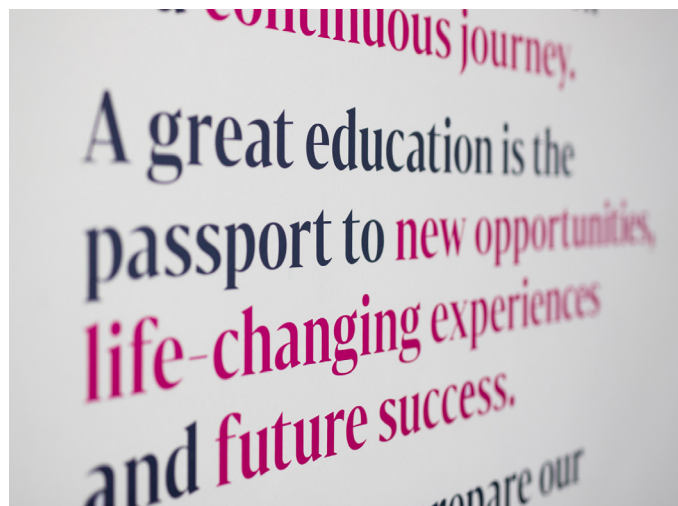 continuous journey.
A great education is the
passport to new opportunities,
life-changing experiences
and future success.
our